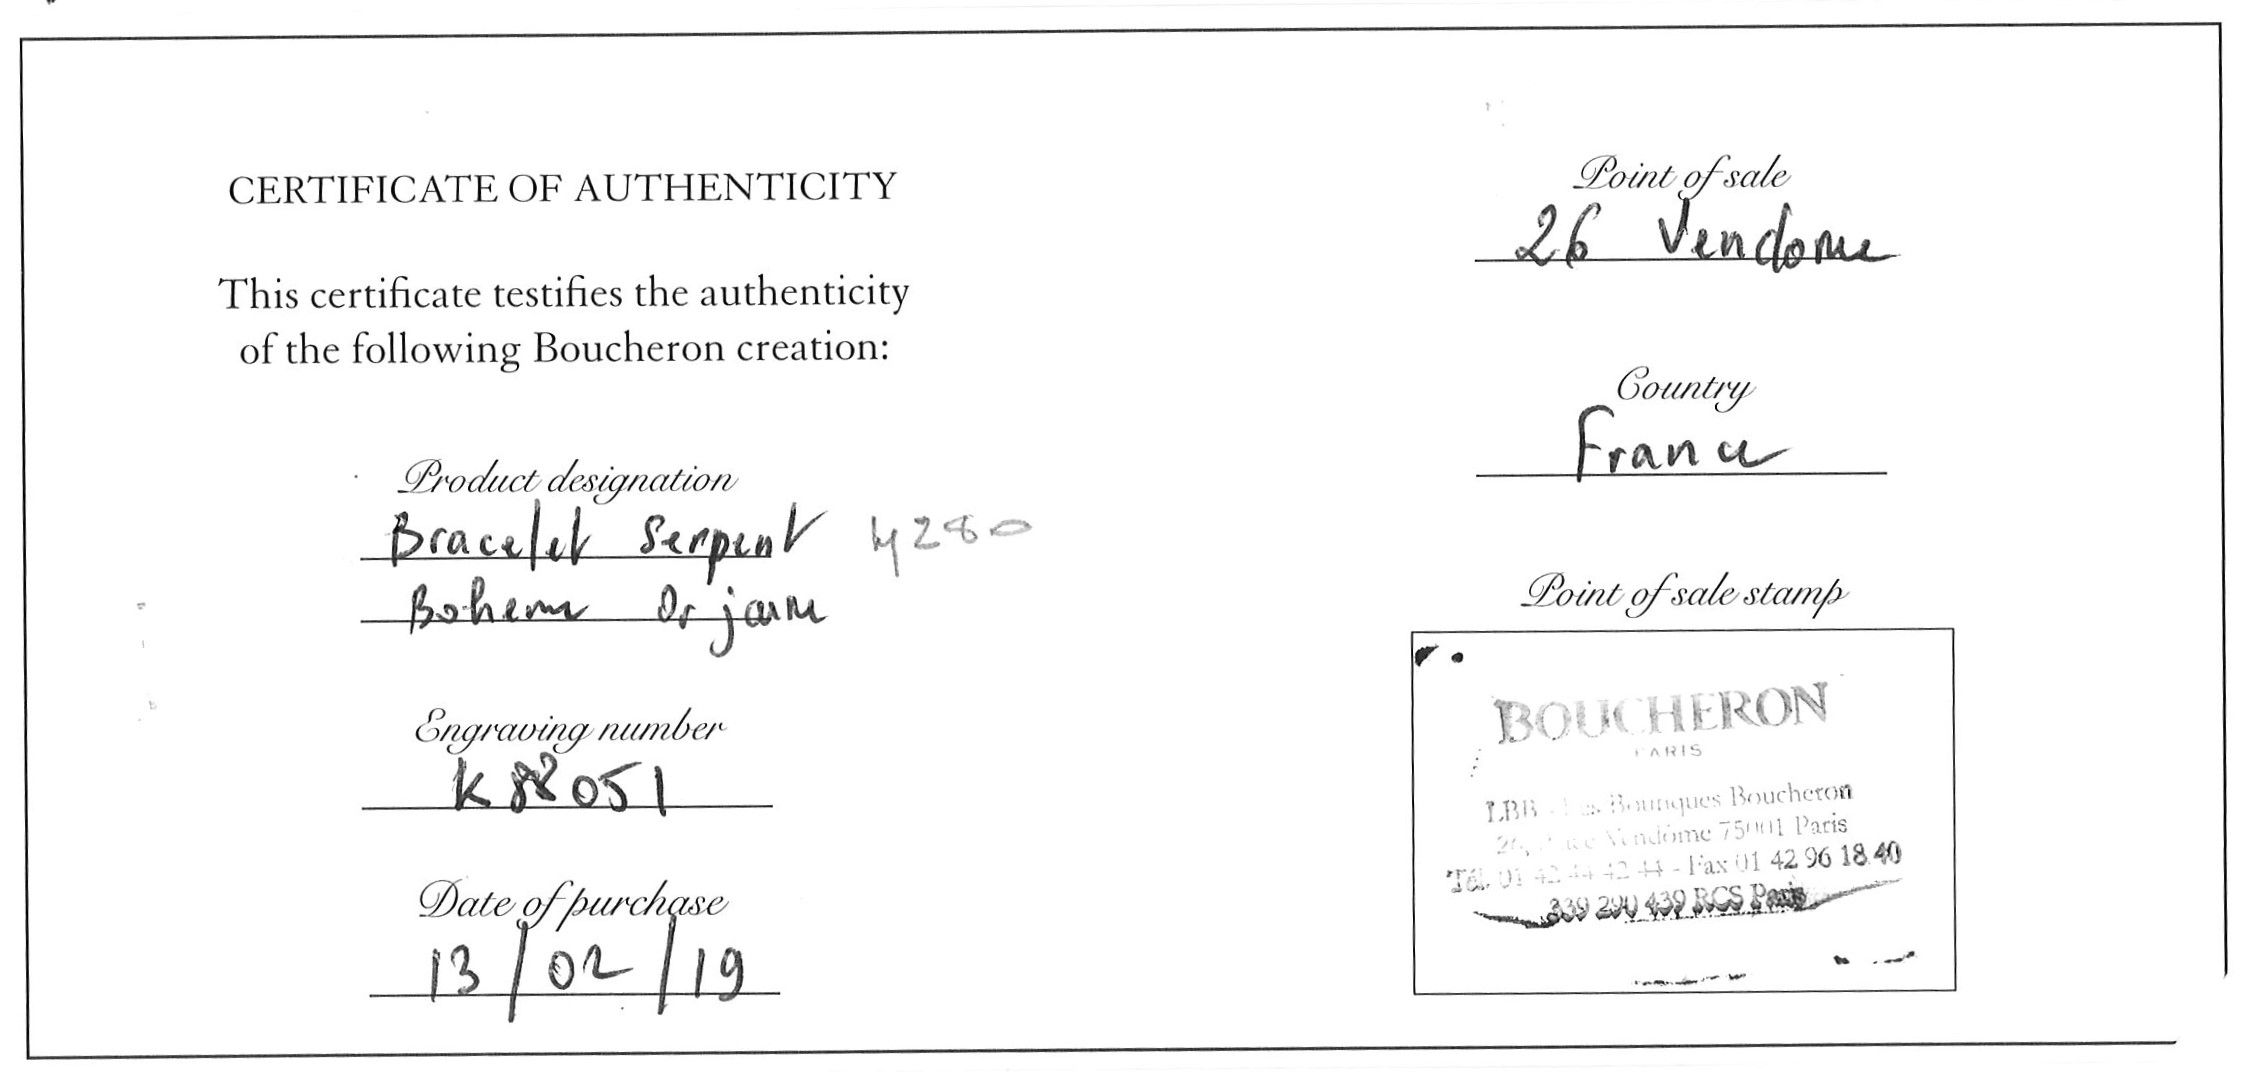 CERTIFICATE OF AUTHENTICITY
This certificate testifies the authenticity
of the following Boucheron creation:
Product designation
Bracelet Serpent 4280
Boheme Or jaune
Engraving number
K 051
Date of purchase
13/02/19
Point of sale
26 Vendome
Country
France
Point of sale stamp
BOUCHERON
PARIS
LBB - Les Boutiques Boucheron
26, Place Vendôme 75001 Paris
Tél. 01 42 44 42 44 - Fax 01 42 96 18 40
339 290 439 RCS Paris